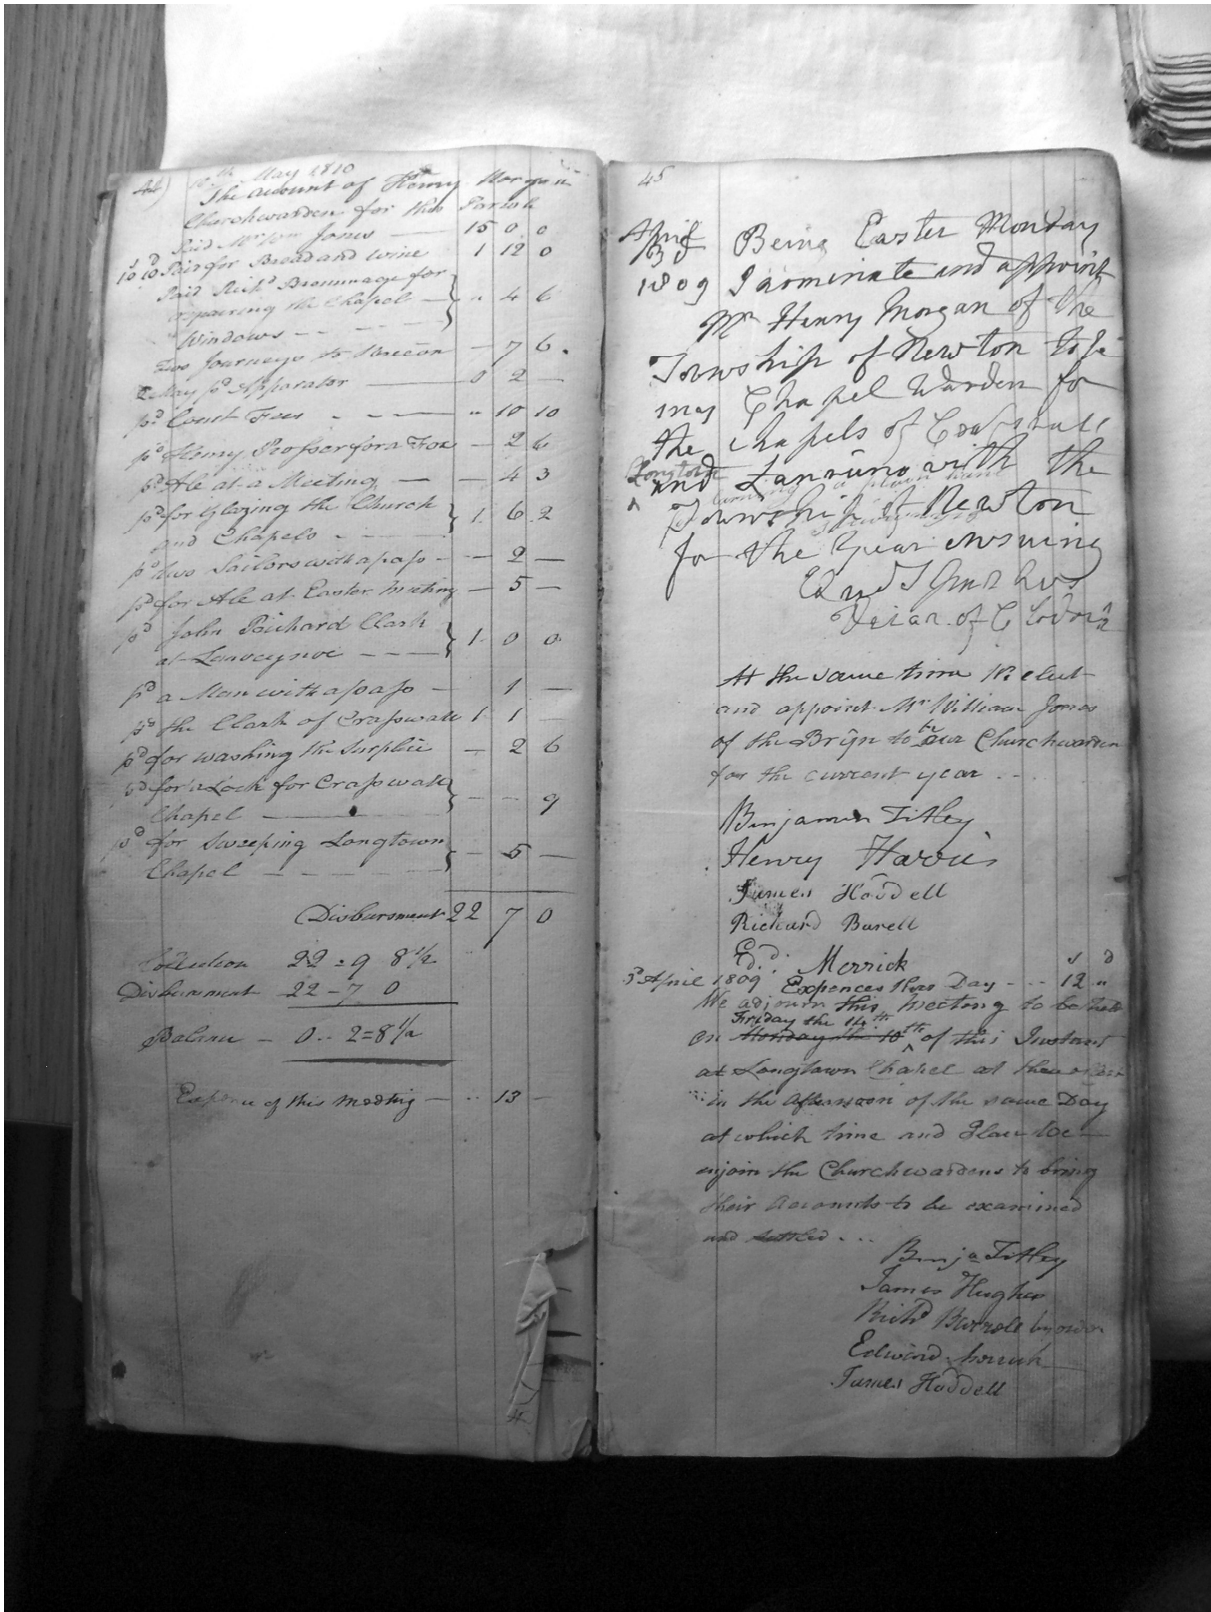 44) 10th May 1810
The account of Henry Morgan
Churchwarden for this Parish
Paid Mr Jon Jones — 15 0 0
Paid for Bread and wine 1 12 0
Paid Richd Brommage for
repairing the Chapel — } " 4 6
Windows
Two Journeys to Brecon — 7 6
May pd Apparator — 0 2 —
pd Court Fees " 10 10
pd Henry Prosser for a Fox — 2 6
pd Ale at a Meeting — — 4 3
pd for Glazing the Church } 1 6 2
and Chapels
pd two Sailors with a pass — — 2 —
pd for Ale at Easter Meeting — 5 —
pd John Prichard Clark } 1 0 0
at Lanveynoe
pd a Man with a pass — 1 —
pd the Clark of Crasswall 1 1 —
pd for washing the Surplice — 2 6
pd for a Lock for Crasswall } — — 9
Chapel
pd for Sweeping Longtown } — 5 —
Chapel
Disbursment 22 7 0
Collection 22 = 9 8 1/2
Disbursment 22 – 7 0
Balance — 0 .. 2 = 8 1/2
Expence of this Meeting — .. 13 —
45
April
3d Being Easter Monday
1809 I nominate and appoint
Mr Henry Morgan of the
Township of Newton to be
my Chapel Warden for
the Chapels of Crasswall
Longtown
and Lanvino with the
Township of Newton
for the Year ensuing
Vicar of Clodock
At the same time We elect
and appoint Mr William Jones
of the Bryn to be our Churchwarden
for the current year
Benjamin Titley
Henry Harris
James Hoddell
Richard Barell
Ed.d: Merrick s d
3d April 1809 Expences this Day - - - 12 "
We adjourn this meeting to be held
Friday the 14th
on Monday the 10th of this Instant
at Longtown Chapel at
in the afternoon of the same Day
at which time and Place We
enjoin the Churchwardens to bring
their Accounts to be examined
and settled . . .
Benja Titley
James Hughes
Richd Barrell
Edward Merrick
James Hoddell